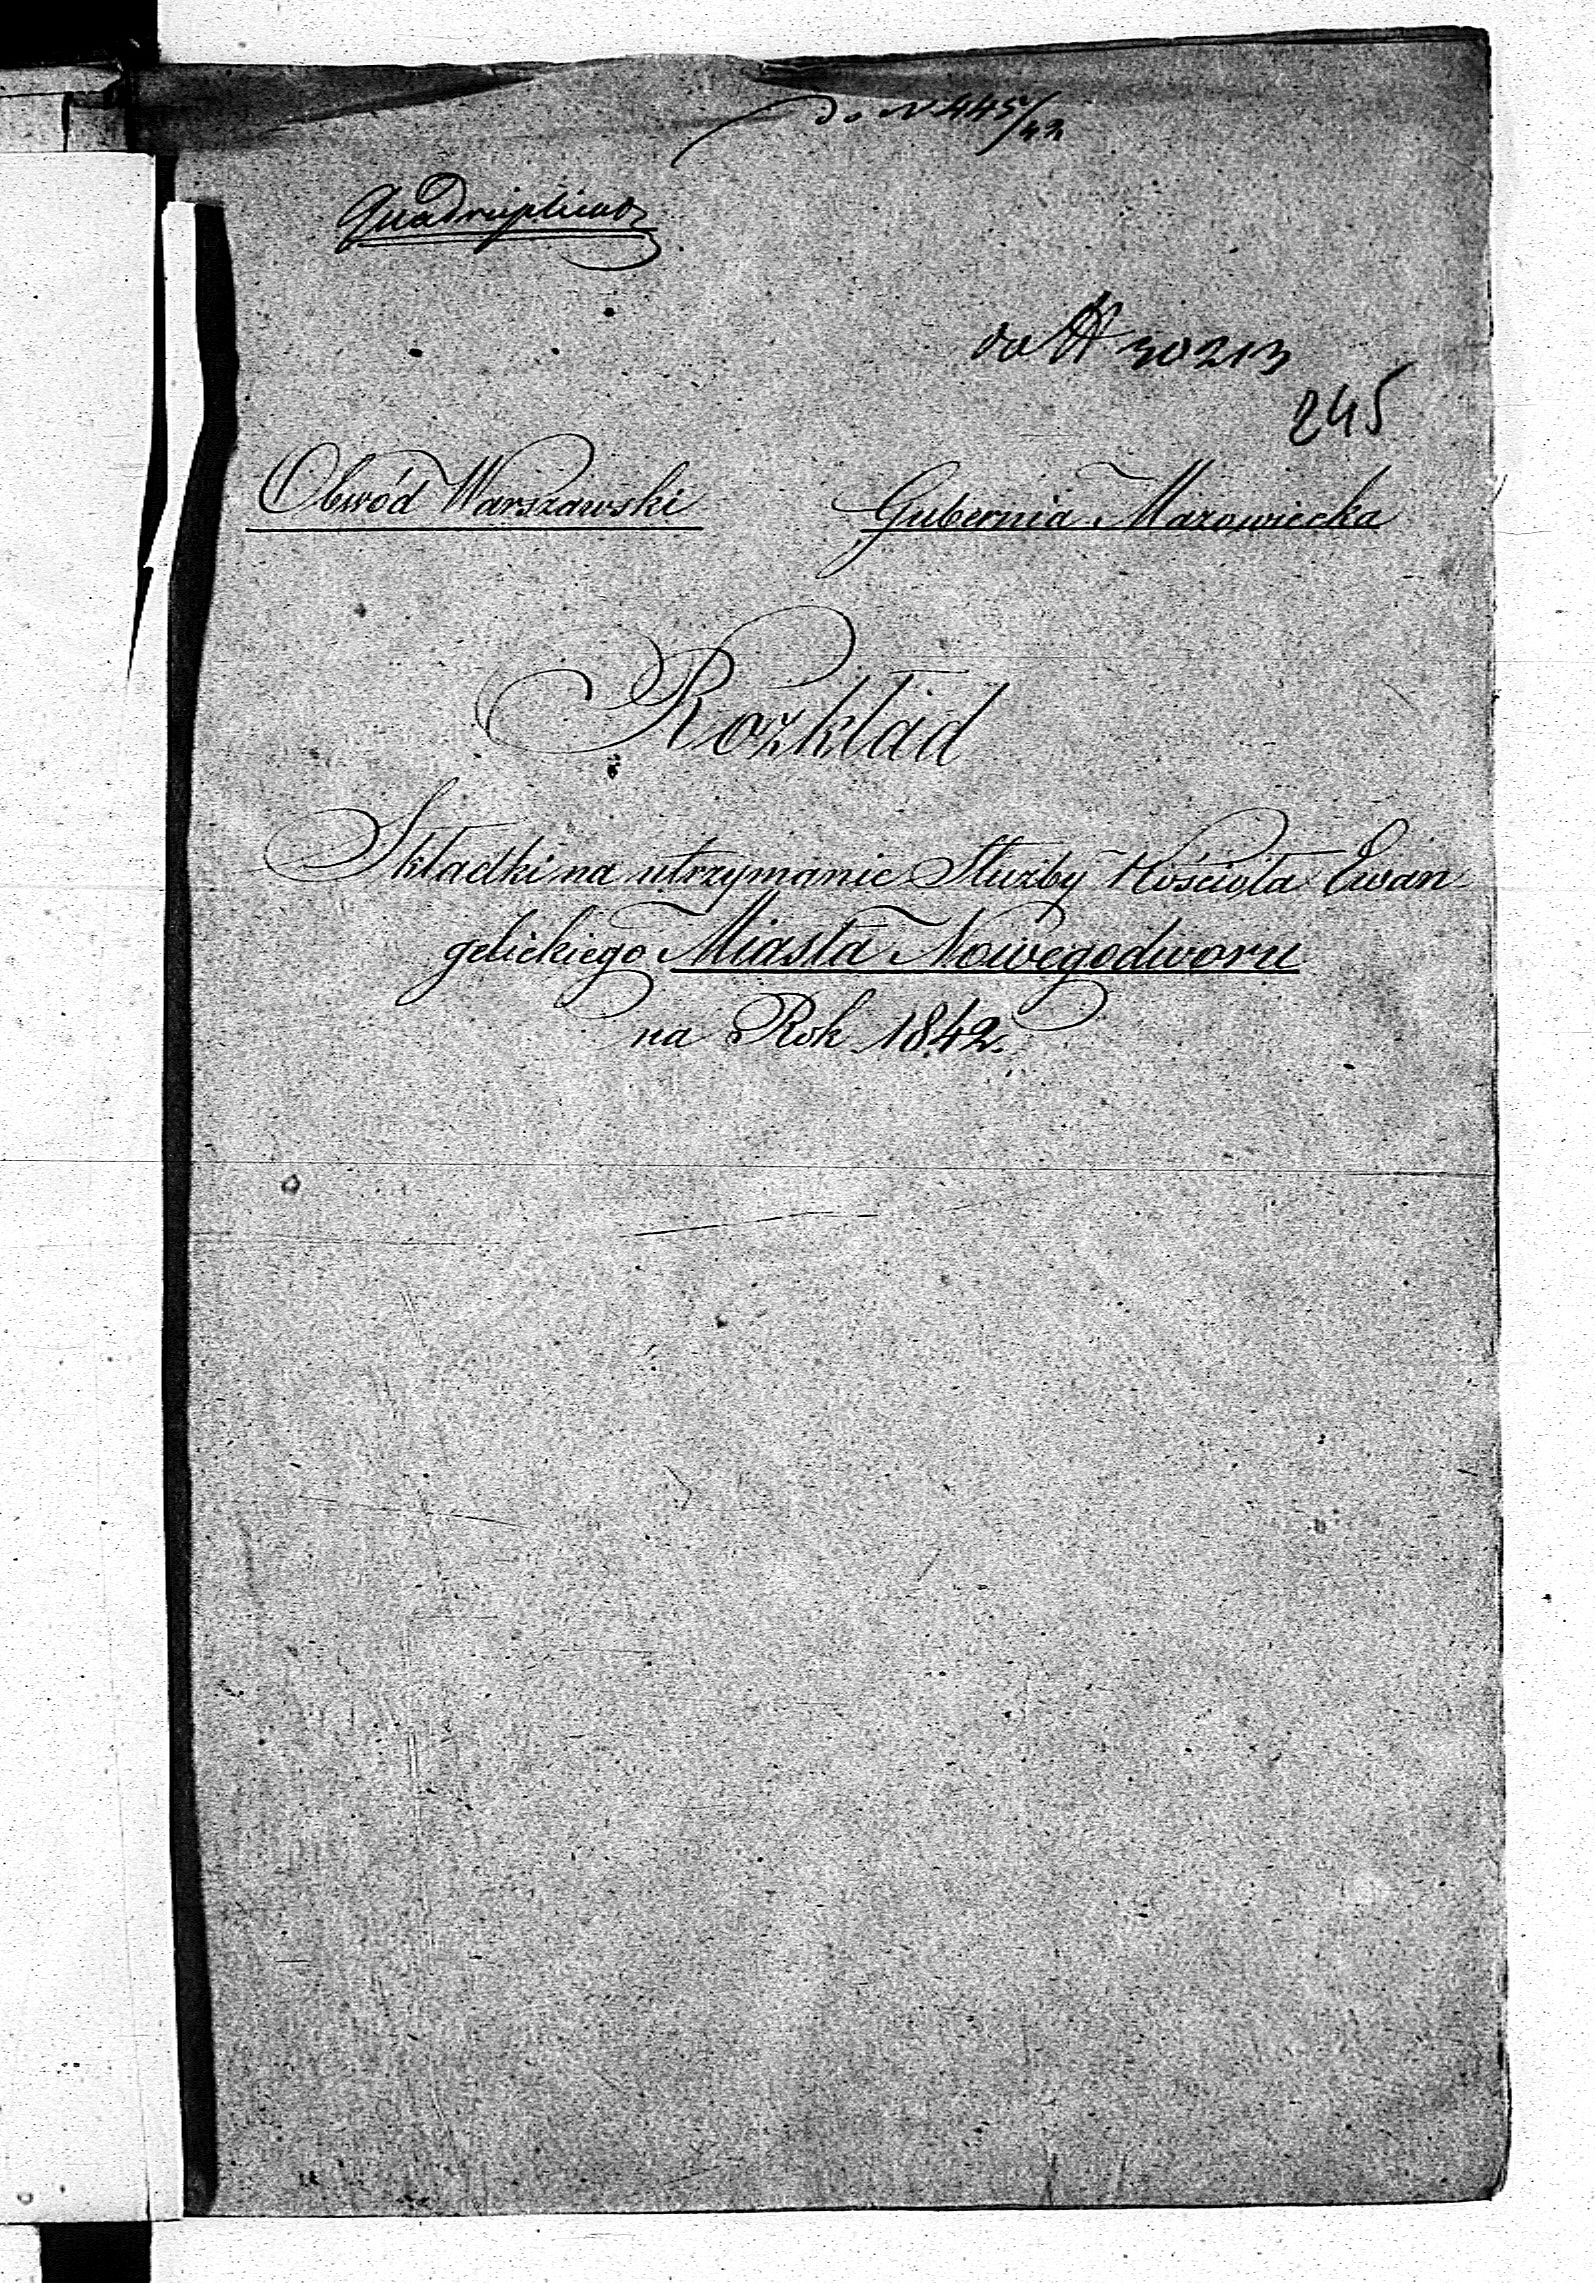 do N 445/42
Quadruplicat
do N 30213
245
Obwód Warszawski Gubernia Mazowiecka
Rozkład
Składki na utrzymanie Służby Kościoła Ewan
gelickiego Miasta Nowegodworu
na Rok 1842.